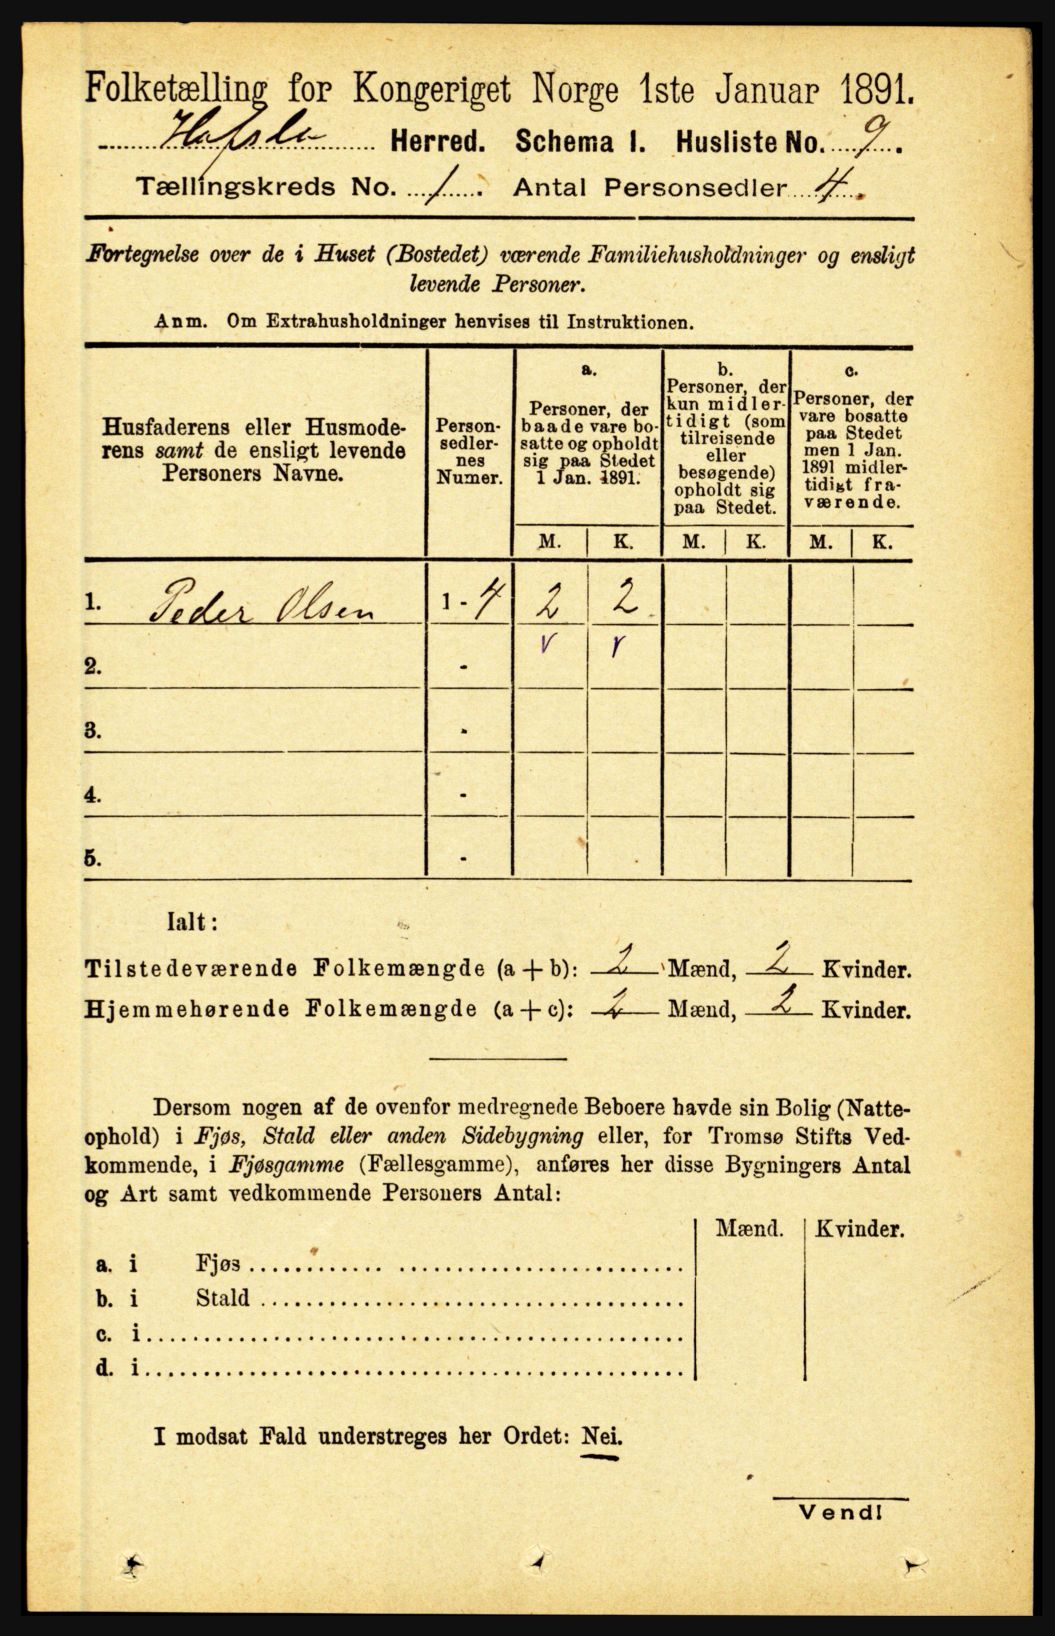 Folketælling for Kongeriget Norge 1ste Januar 1891.
Hafslo Herred. Schema 1. Husliste No. 9.
Tællingskreds No. 1. Antal Personsedler 4.
Fortegnelse over de i Huset (Bostedet) værende Familiehusholdninger og ensligt
levende Personer.
Anm. Om Extrahusholdninger henvises til Instruktionen.
Husfaderens eller Husmode-
rens samt de ensligt levende
Personers Navne.
Person-
sedler-
nes
Numer.
a.
Personer, der
baade vare bo-
satte og opholdt
sig paa Stedet
1 Jan. 1891.
b.
Personer, der
kun midler-
tidigt (som
tilreisende
eller
besøgende)
opholdt sig
paa Stedet.
c.
Personer, der
vare bosatte
paa Stedet
men 1 Jan.
1891 midler-
tidigt fra-
værende.
M. K. M. K. M. K.
1. Peder Olsen 1 - 4 2 2
2. - v v
3. -
4. -
5. -
Ialt:
Tilstedeværende Folkemængde (a + b): 2 Mænd, 2 Kvinder.
Hjemmehørende Folkemængde (a + c): 2 Mænd, 2 Kvinder.
Dersom nogen af de ovenfor medregnede Beboere havde sin Bolig (Natte-
ophold) i Fjøs, Stald eller anden Sidebygning eller, for Tromsø Stifts Ved-
kommende, i Fjøsgamme (Fællesgamme), anføres her disse Bygningers Antal
og Art samt vedkommende Personers Antal:
Mænd. Kvinder.
a. i Fjøs
b. i Stald
c. i
d. i
I modsat Fald understreges her Ordet: Nei.
Vend!